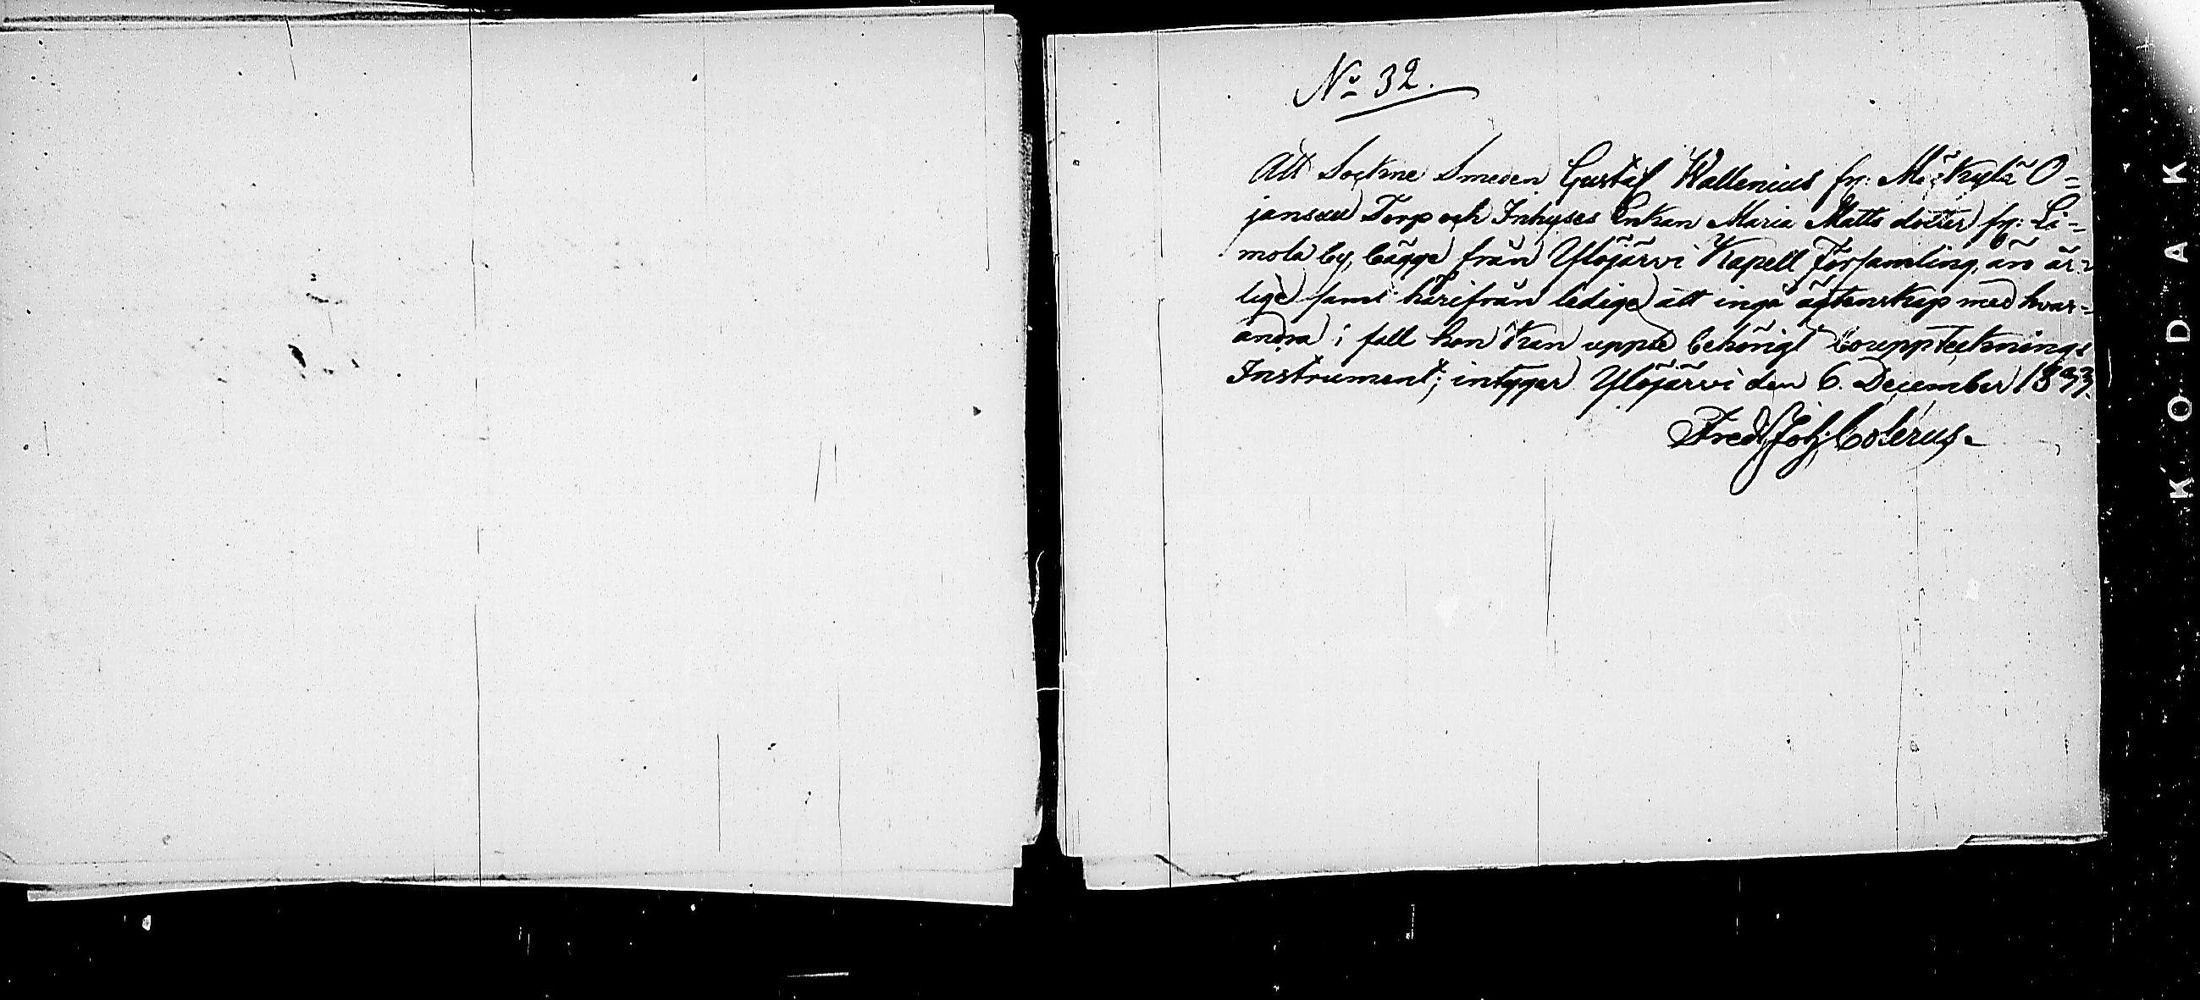 No 32.
Att Sockne Smeden Gustaf Wallenius fr: Mickylä O=
jansuu Torp och Inhyses Enkan Maria Matts dotter fr: Li=
mola by, bägge från Ylöjärvi Kapell Församling, äro är=
lige samt härifrån ledige att ingå ägtenskap med hvar=
andra i fall hon kan uppte behörigt Bouppteknings
Instrument; intygar Ylöjärvi den 6. December 1833.
Fredr Joh: Colerus.
KODAK